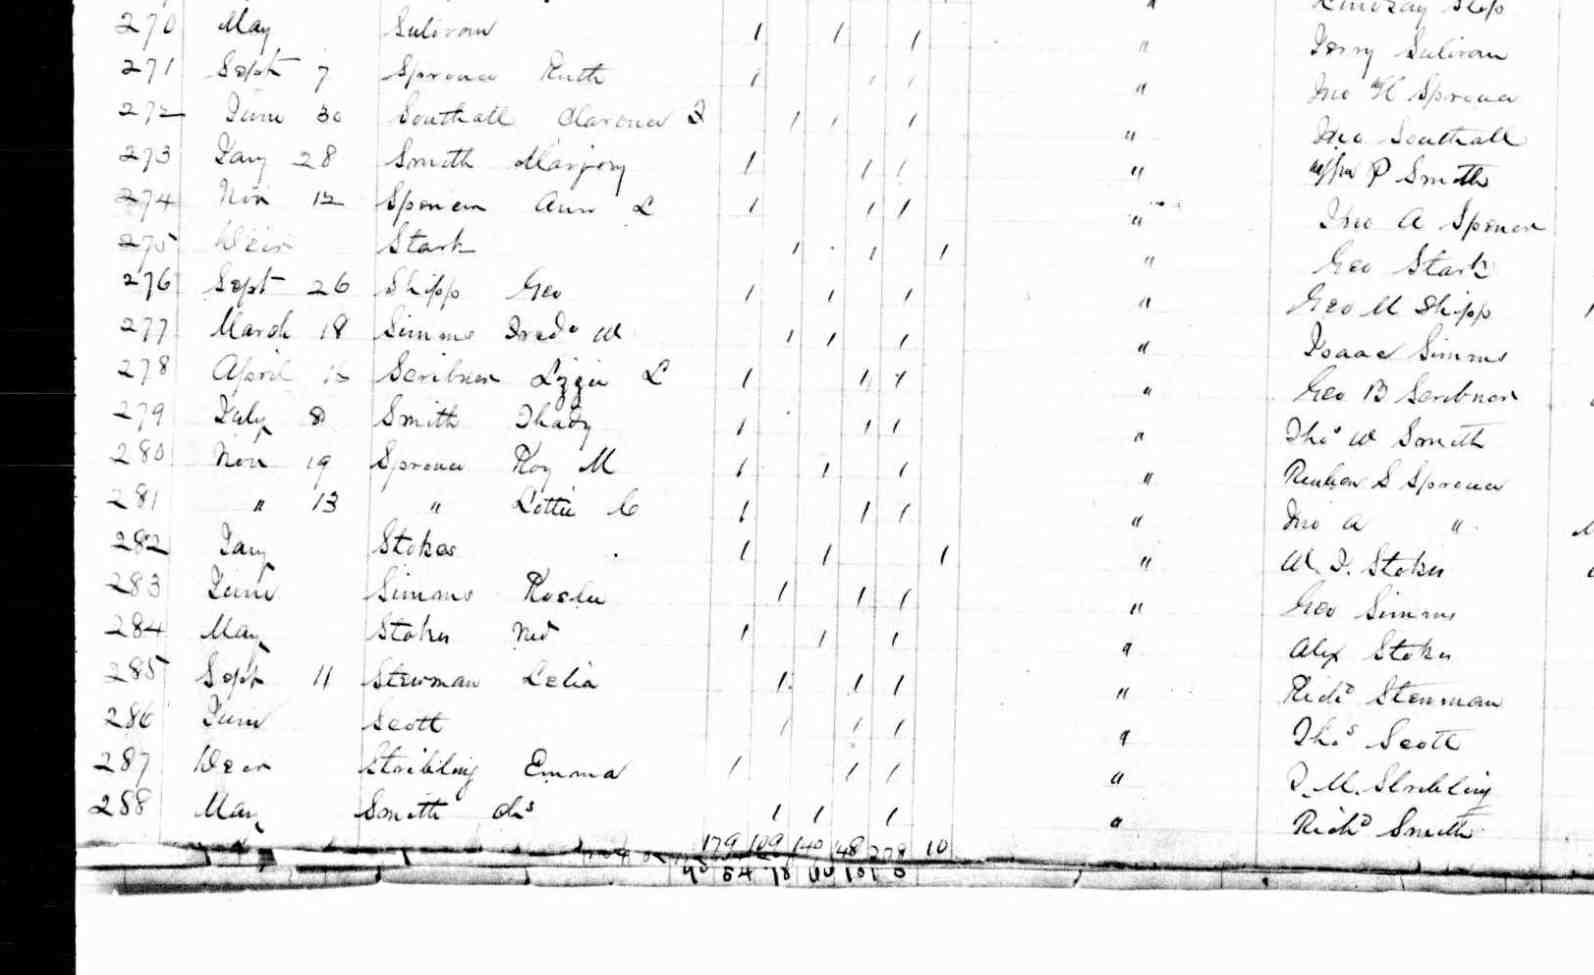 Lindsay Slop
270 May Sulivan 1 1 1 " Jerry Sulivan
271 Sept 7 Sprouce Ruth 1 1 1 " Jno H Sprouce
272 June 30 Southall Clarence 1 1 1 " Jno Southall
273 Jany 28 Smith Marjory 1 1 1 " P Smith
274 Nov 12 Spencer Ann L 1 1 1 " Tho A Spencer
275 Decr Stark 1 1 1 " Geo Stark
276 Sept 26 Shipp Geo 1 1 1 " Geo M Shipp
277 March 18 Simms Fredk W 1 1 1 " Isaac Simms
278 April Scribner Lizzie L 1 1 1 " Geo B Scribner
279 July 8 Smith Thady 1 1 1 " Thos W Smith
280 Nov 19 Sprouce Roy M 1 1 1 " Reuben S Sprouce
281 " 13 " Lottie C 1 1 1 " Jno A "
282 Jany Stokes 1 1 1 " W. Stokes
283 June Simms 1 1 1 " Geo Simms
284 May Stokes Ned 1 1 1 " Alex Stokes
285 Sept 11 Steurman Lelia 1 1 1 " Richd Steurman
286 June Scott 1 1 1 " Thos Scott
287 Decr Stribling Emma 1 1 1 " M. Stribling
288 May Smith Chs 1 1 1 " Richd Smith
179 109 140 148 278 10